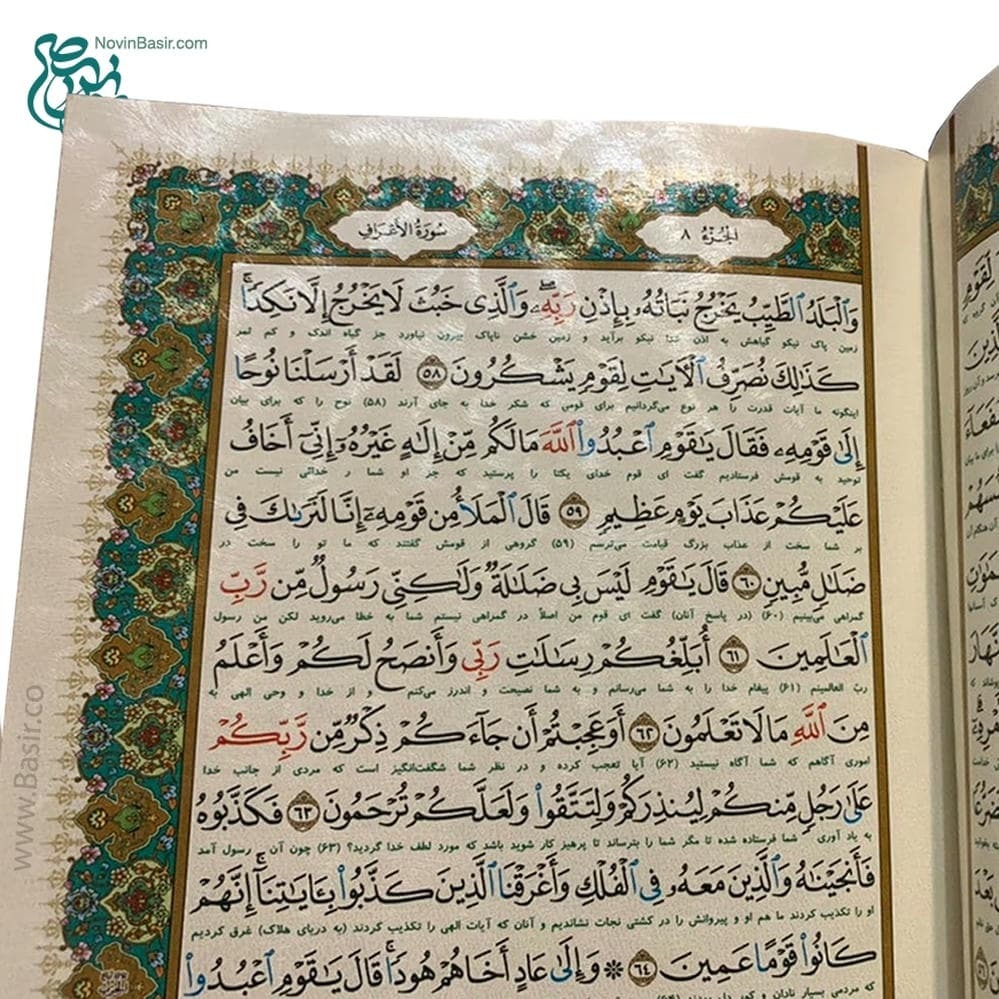 NovinBasir.com
سُورَةُ الْأَعْرَافِ
الجُزءُ ٨
وَالْبَلَدُ الطَّيِّبُ يَخْرُجُ نَبَاتُهُ بِإِذْنِ رَبِّهِ وَالَّذِي خَبُثَ لَا يَخْرُجُ إِلَّا نَكِدًا
زمین پاک نیکو گیاهش به اذن خدا نیکو برآید و زمین خشن ناپاک بیرون نیاورد جز گیاه اندک و کم ثمر
كَذَٰلِكَ نُصَرِّفُ الْآيَاتِ لِقَوْمٍ يَشْكُرُونَ ٥٨ لَقَدْ أَرْسَلْنَا نُوحًا
اینگونه ما آیات قدرت را هر نوع می‌گردانیم برای قومی که شکر خدا به جای آرند (۵۸) نوح را که برای بیان
إِلَىٰ قَوْمِهِ فَقَالَ يَا قَوْمِ اعْبُدُوا اللَّهَ مَا لَكُم مِّنْ إِلَٰهٍ غَيْرُهُ إِنِّي أَخَافُ
توحید به قومش فرستادیم گفت ای قوم خدای یکتا را پرستید که جز او شما را خدائی نیست من
عَلَيْكُمْ عَذَابَ يَوْمٍ عَظِيمٍ ٥٩ قَالَ الْمَلَأُ مِن قَوْمِهِ إِنَّا لَنَرَاكَ فِي
بر شما سخت از عذاب بزرگ قیامت می‌ترسم (۵۹) گروهی از قومش گفتند که ما تو را سخت در
ضَلَالٍ مُّبِينٍ ٦٠ قَالَ يَا قَوْمِ لَيْسَ بِي ضَلَالَةٌ وَلَٰكِنِّي رَسُولٌ مِّن رَّبِّ
گمراهی می‌بینیم (۶۰) (در پاسخ آنان) گفت ای قوم من اصلاً در گمراهی نیستم شما به خطا می‌روید لکن من رسول
الْعَالَمِينَ ٦١ أُبَلِّغُكُمْ رِسَالَاتِ رَبِّي وَأَنصَحُ لَكُمْ وَأَعْلَمُ
ربّ العالمینم (۶۱) پیغام خدا را به شما می‌رسانم و به شما نصیحت و اندرز می‌کنم و از خدا و وحی الهی به
مِنَ اللَّهِ مَا لَا تَعْلَمُونَ ٦٢ أَوَعَجِبْتُمْ أَن جَاءَكُمْ ذِكْرٌ مِّن رَّبِّكُمْ
اموری آگاهم که شما آگاه نیستید (۶۲) آیا تعجب کرده و در نظر شما شگفت‌انگیز است که مردی از جانب خدا
عَلَىٰ رَجُلٍ مِّنكُمْ لِيُنذِرَكُمْ وَلِتَتَّقُوا وَلَعَلَّكُمْ تُرْحَمُونَ ٦٣ فَكَذَّبُوهُ
به یاد آوری شما فرستاده شده تا مگر شما را بترساند تا پرهیز کار شوید باشد که مورد لطف خدا گردید؟ (۶۳) چون آن رسول آمد
فَأَنجَيْنَاهُ وَالَّذِينَ مَعَهُ فِي الْفُلْكِ وَأَغْرَقْنَا الَّذِينَ كَذَّبُوا بِآيَاتِنَا إِنَّهُمْ
او را تکذیب کردند ما هم او و پیروانش را در کشتی نجات نشاندیم و آنان که آیات الهی را تکذیب کردند (به دریای هلاک) غرق کردیم
كَانُوا قَوْمًا عَمِينَ ٦٤ وَإِلَىٰ عَادٍ أَخَاهُمْ هُودًا قَالَ يَا قَوْمِ اعْبُدُوا
که مردمی بسیار نادان و کور دل بودند (۶۴)
www.Basir.co